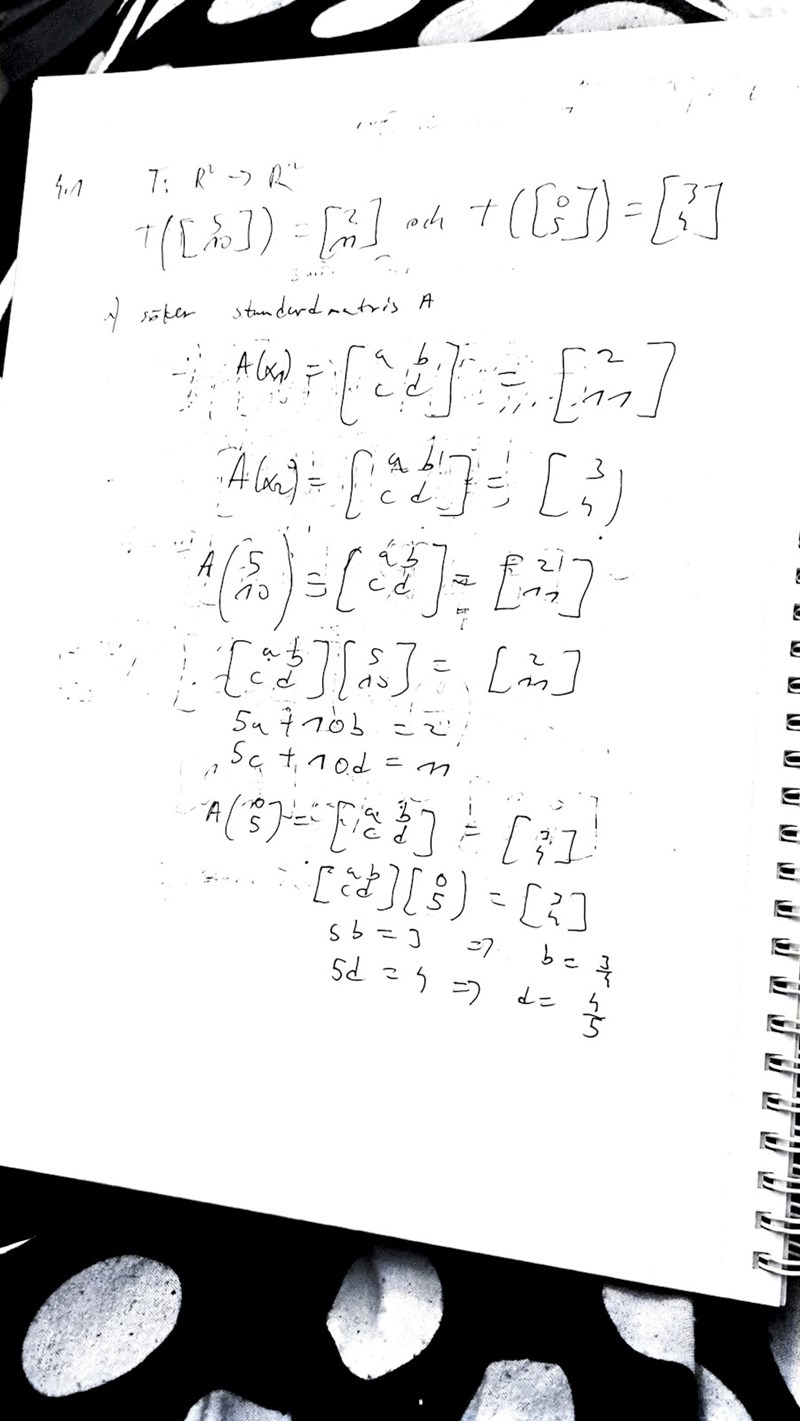 4.1 T: R² → R²
T([5 10]) = [2 11] och T([0 5]) = [3 4]
söker standardmatris A
A(x₁) = [a b c d] = [2 11]
A(x₂) = [a b c d] = [3 4]
A(5 10) = [a b c d] = [2 11]
[a b c d][5 10] = [2 11]
5a + 10b = 2
5c + 10d = 11
A(0 5) = [a b c d] = [3 4]
[a b c d][0 5] = [3 4]
5b = 3 => b = 3/4
5d = 4 => d = 4/5